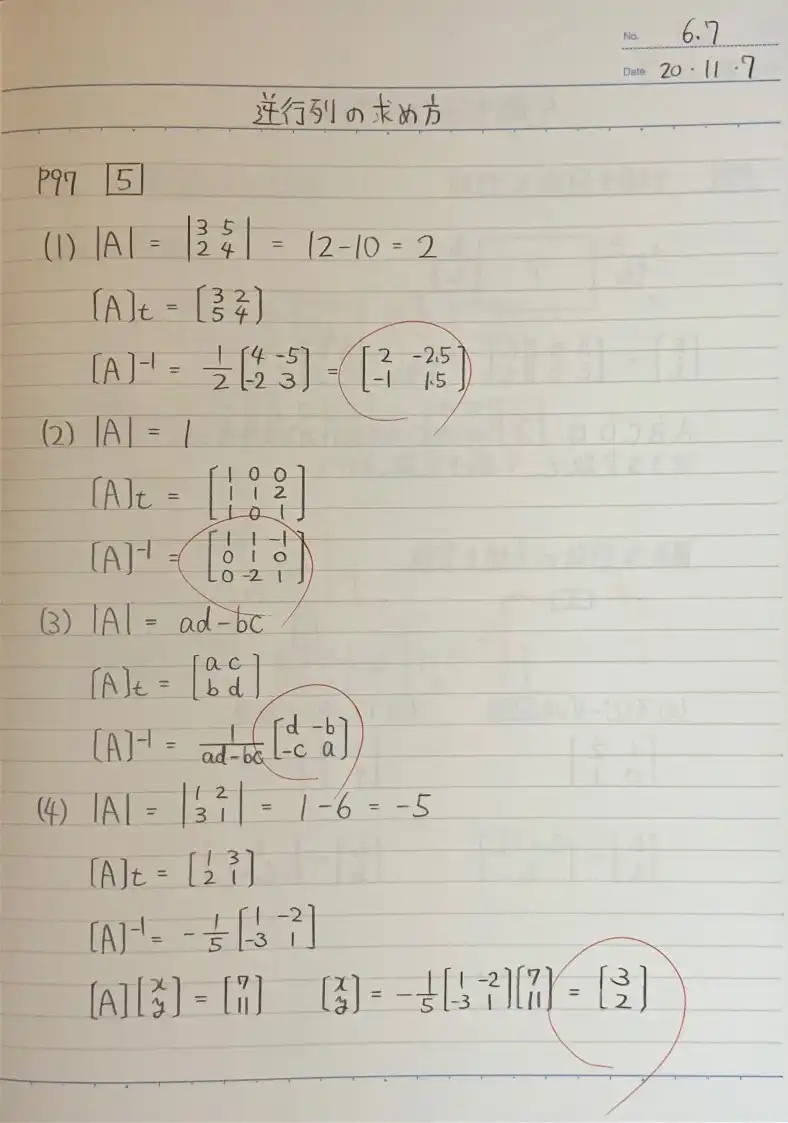 No. 6.7
Date 20・11・7
逆行列の求め方
P97 [5]
(1) |A| = |3 5; 2 4| = 12-10 = 2
[A]t = [3 2; 5 4]
[A]⁻¹ = 1/2 [4 -5; -2 3] = [2 -2.5; -1 1.5]
(2) |A| = 1
[A]t = [1 0 0; 1 1 2; 1 0 1]
[A]⁻¹ = [1 1 -1; 0 1 0; 0 -2 1]
(3) |A| = ad-bc
[A]t = [a c; b d]
[A]⁻¹ = 1/(ad-bc) [d -b; -c a]
(4) |A| = |1 2; 3 1| = 1-6 = -5
[A]t = [1 3; 2 1]
[A]⁻¹ = -1/5 [1 -2; -3 1]
[A][x; y] = [7; 11] [x; y] = -1/5 [1 -2; -3 1][7; 11] = [3; 2]